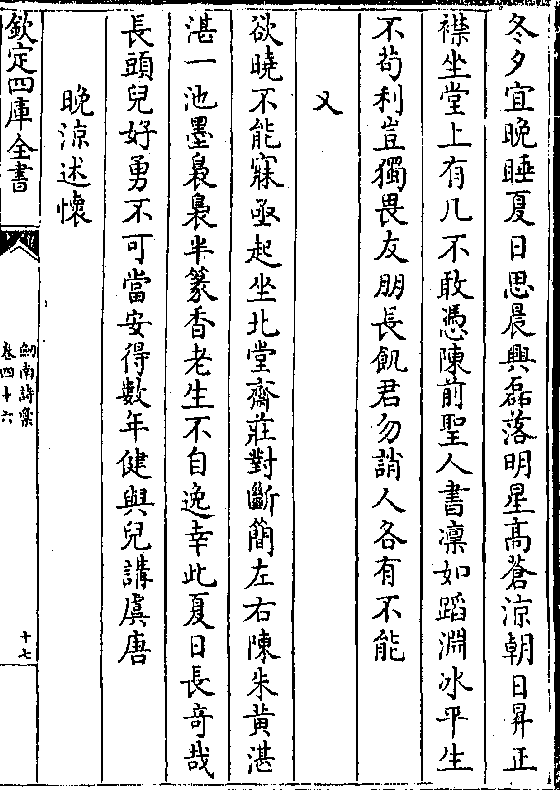 冬夕宜晚睡夏日思晨興磊落明星高蒼涼朝日昇正
襟坐堂上有几不敢憑陳前聖人書凛如蹈淵冰平生
不苟利豈獨畏友朋長飢君勿誚人各有不能
又
欲曉不能寐亟起坐北堂齋莊對斷簡左右陳朱黄湛
湛一池墨裊裊半篆香老生不自逸幸此夏日長奇哉
長頭兒好勇不可當安得數年健與兒講虞唐
晚涼述懷
欽定四庫全書
劒南詩槀
卷四十六
十七